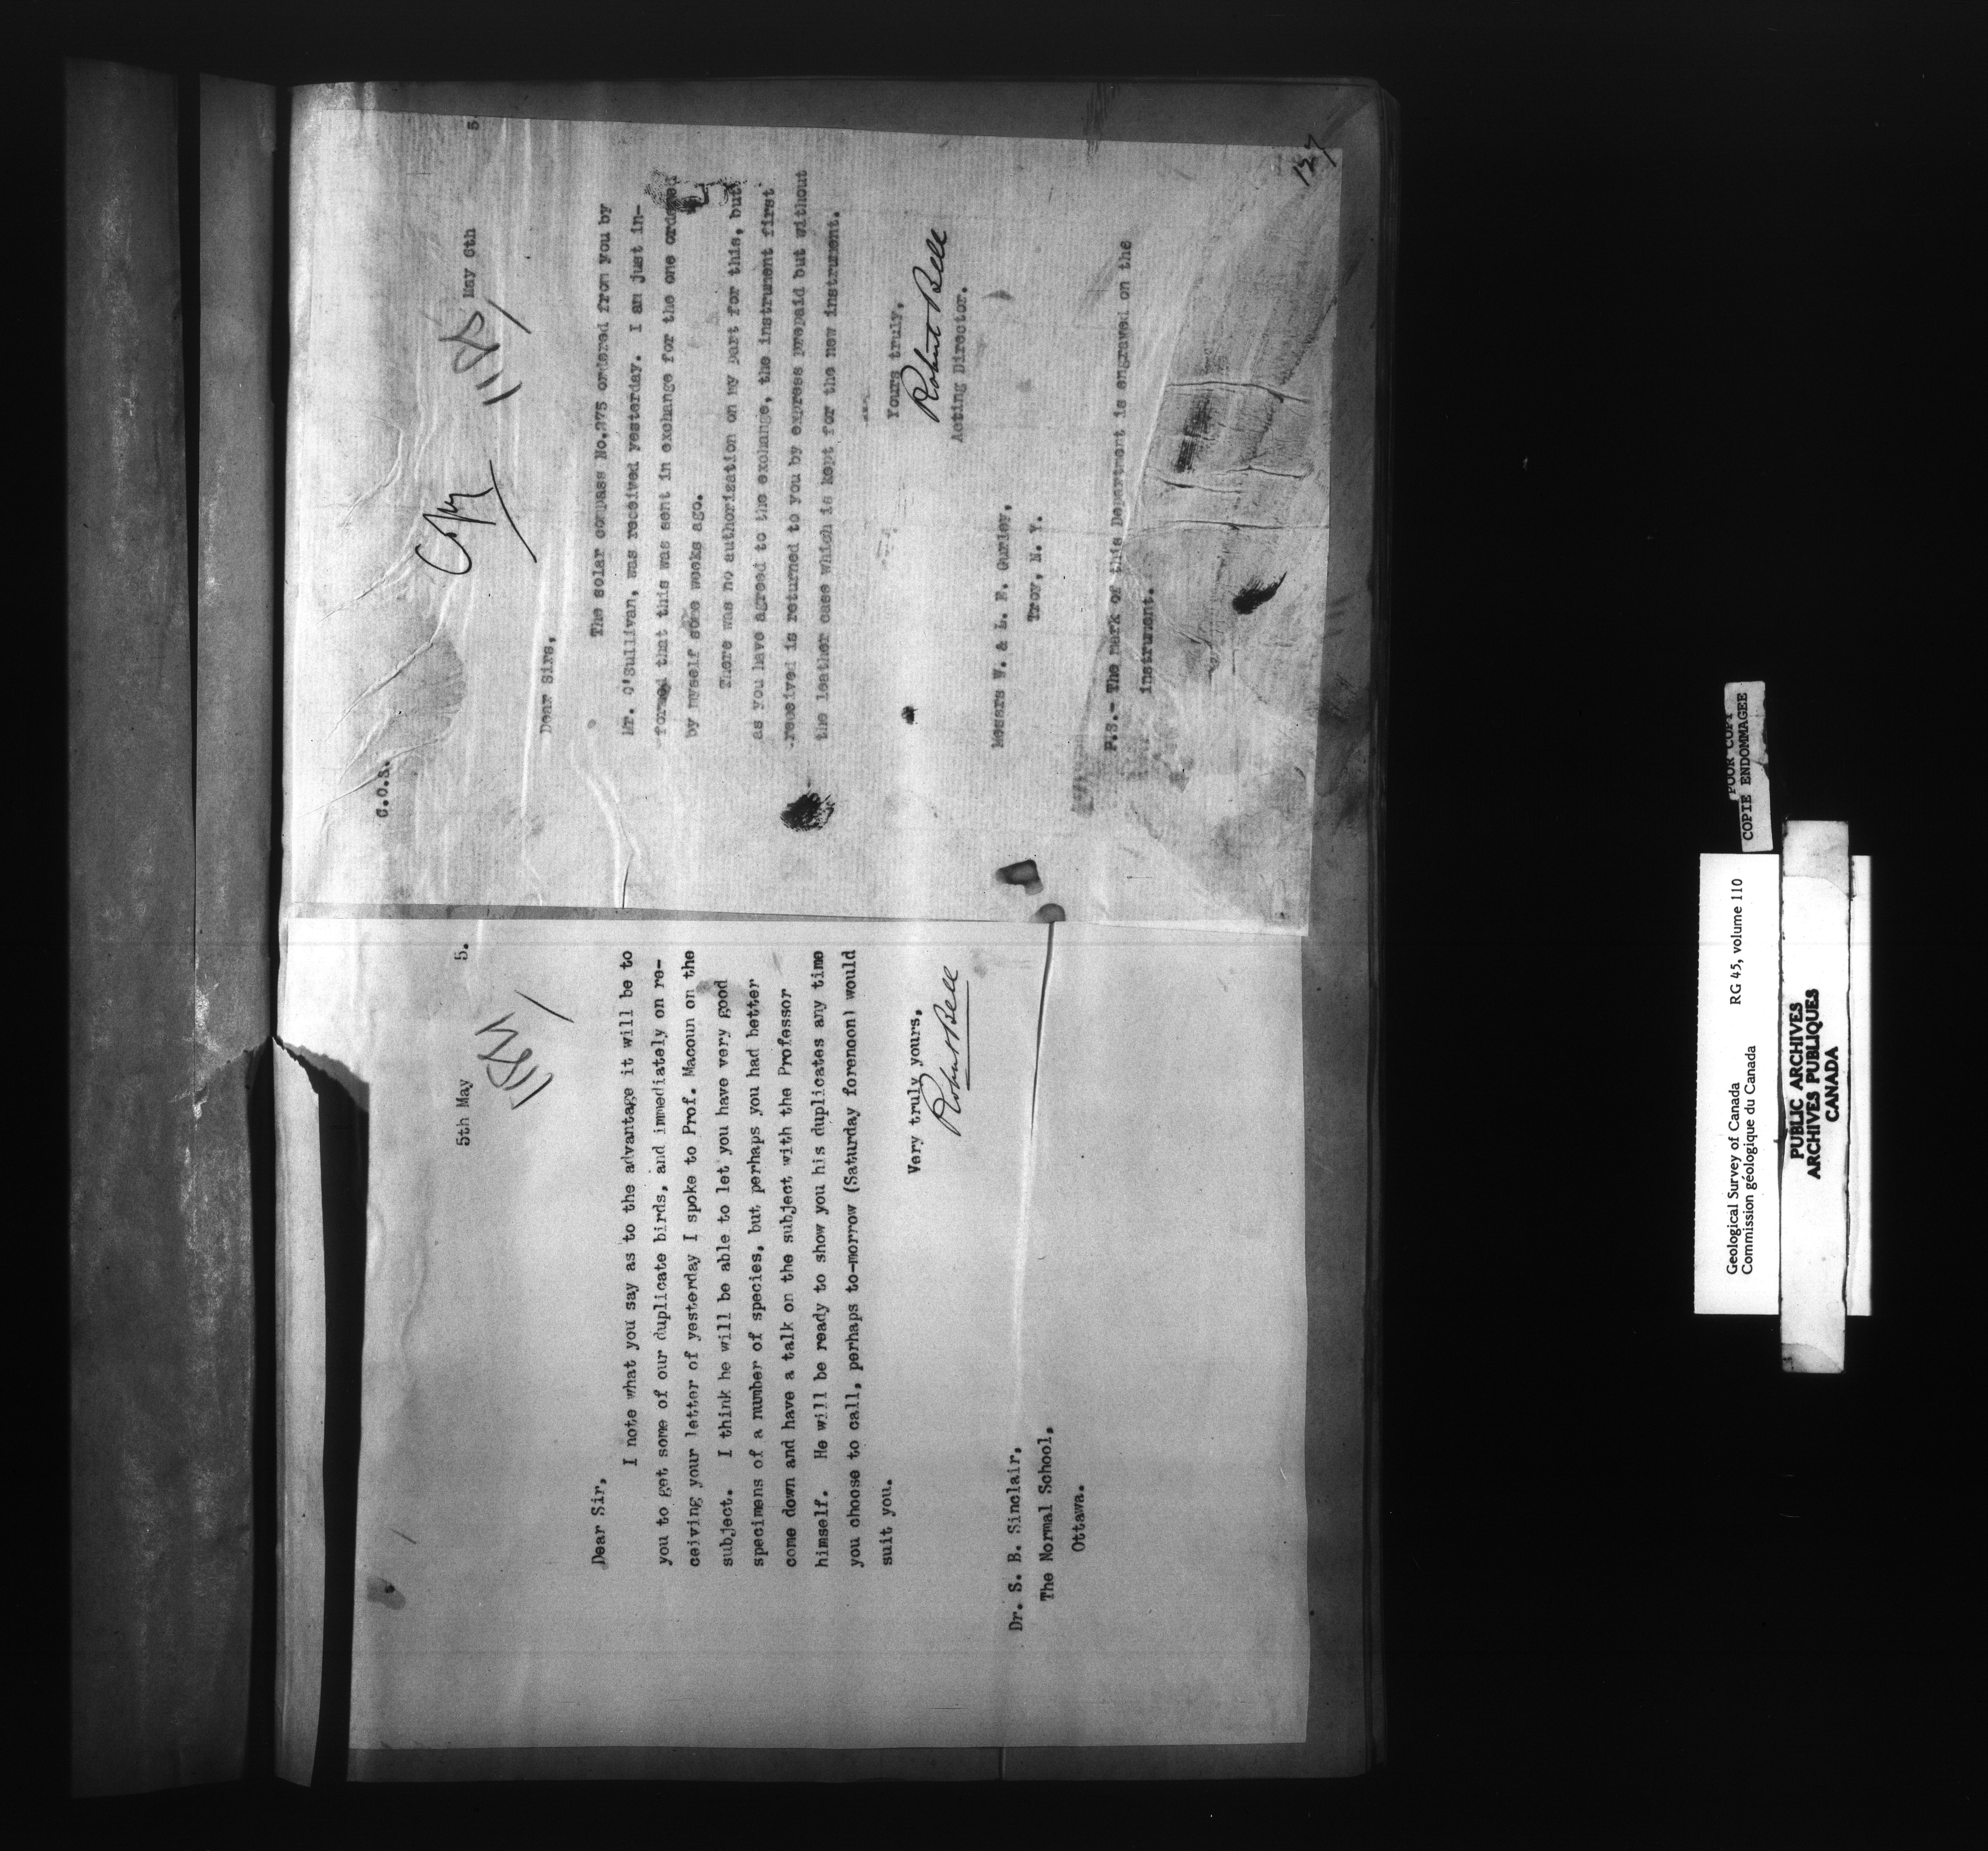 5th May 5.
Dear Sir,
I note what you say as to the advantage it will be to
you to get some of our duplicate birds, and immediately on re-
ceiving your letter of yesterday I spoke to Prof. Macoun on the
subject. I think he will be able to let you have very good
specimens of a number of species, but perhaps you had better
come down and have a talk on the subject with the Professor
himself. He will be ready to show you his duplicates any time
you choose to call, perhaps to-morrow (Saturday forenoon) would
suit you.
Very truly yours,
Robert Bell
Dr. S. B. Sinclair,
The Normal School,
Ottawa.
C.O.S.
Copy
May 6th 5.
Dear Sirs,
The solar compass No.275 ordered from you by
Mr. O'Sullivan, was received yesterday. I am just in-
formed that this was sent in exchange for the one ordered
by myself some weeks ago.
There was no authorization on my part for this, but
as you have agreed to the exchange, the instrument first
received is returned to you by express prepaid but without
the leather case which is kept for the new instrument.
Yours truly,
Robert Bell
Acting Director.
Messrs W. & L. E. Gurley,
Troy, N. Y.
P.S.- The mark of this Department is engraved on the
instrument.
127
POOR COPY
COPIE ENDOMMAGEE
Geological Survey of Canada RG 45, volume 110
Commission géologique du Canada
PUBLIC ARCHIVES
ARCHIVES PUBLIQUES
CANADA